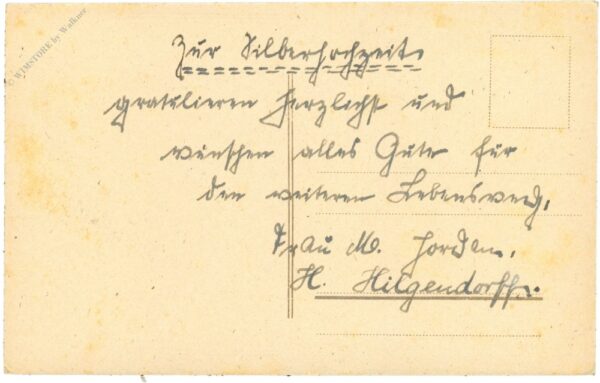 © WTMSTORE by Walkner
Zur Silberhochzeit
gratulieren herzlichst und
wünschen alles Gute für
den weiteren Lebensweg.
Frau M. Jordan.
H. Hilgendorff.